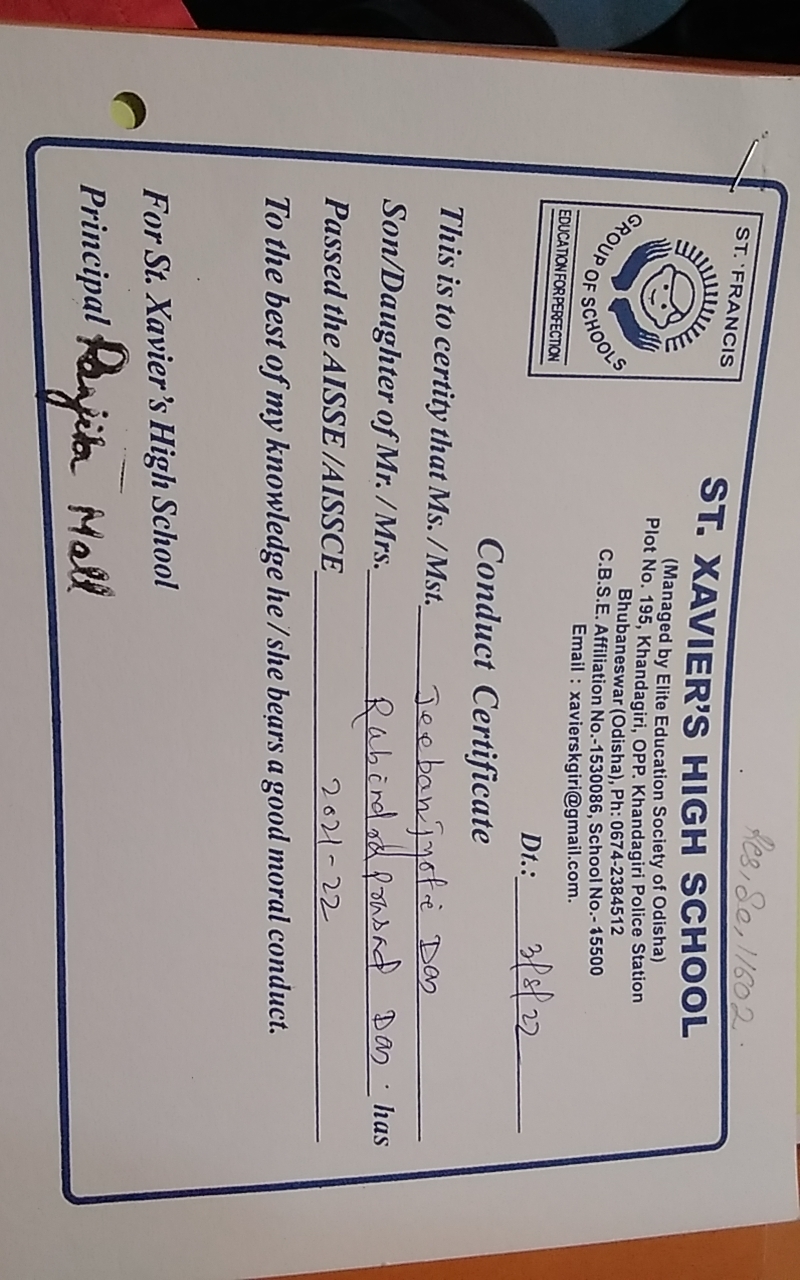 Acs, Sc, 11602.
ST. FRANCIS
GROUP OF SCHOOLS
EDUCATION FOR PERFECTION
ST. XAVIER'S HIGH SCHOOL
(Managed by Elite Education Society of Odisha)
Plot No. 195, Khandagiri, OPP. Khandagiri Police Station
Bhubaneswar (Odisha), Ph: 0674-2384512
C.B.S.E. Affiliation No.-1530086, School No.-15500
Email : xavierskgiri@gmail.com.
Dt.: 3/8/22
Conduct Certificate
This is to certity that Ms. / Mst. Jeebanjyoti Das
Son/Daughter of Mr. / Mrs. Rabindra Prasad Das. has
Passed the AISSE /AISSCE 2021-22
To the best of my knowledge he / she bears a good moral conduct.
For St. Xavier's High School
Principal Ranjita Mall